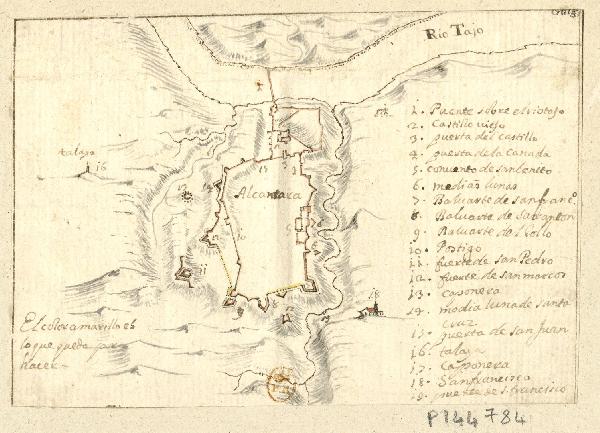 Rio Tajo
talaya
16
Alcantara
15
13
11
12
18
El color amarillo es
lo que queda por
hacer
1. Puente sobre el rio tajo
2. Castillo viejo
3. puerta del Castillo
4. puerta de la Cañada
5. convento de san benito
6. medias lunas
7. Baluarte de san franc.º
8. Baluarte de san anton
9. Baluarte del Rollo
10. Postigo
11. fuerte de san Pedro
12. fuerte de san marcos
13. caponera
14. media luna de santa
cruz
15. puerta de san Juan
16. talaya
17. Caponera
18. San francisco
19. puente de S. francisco
P144784